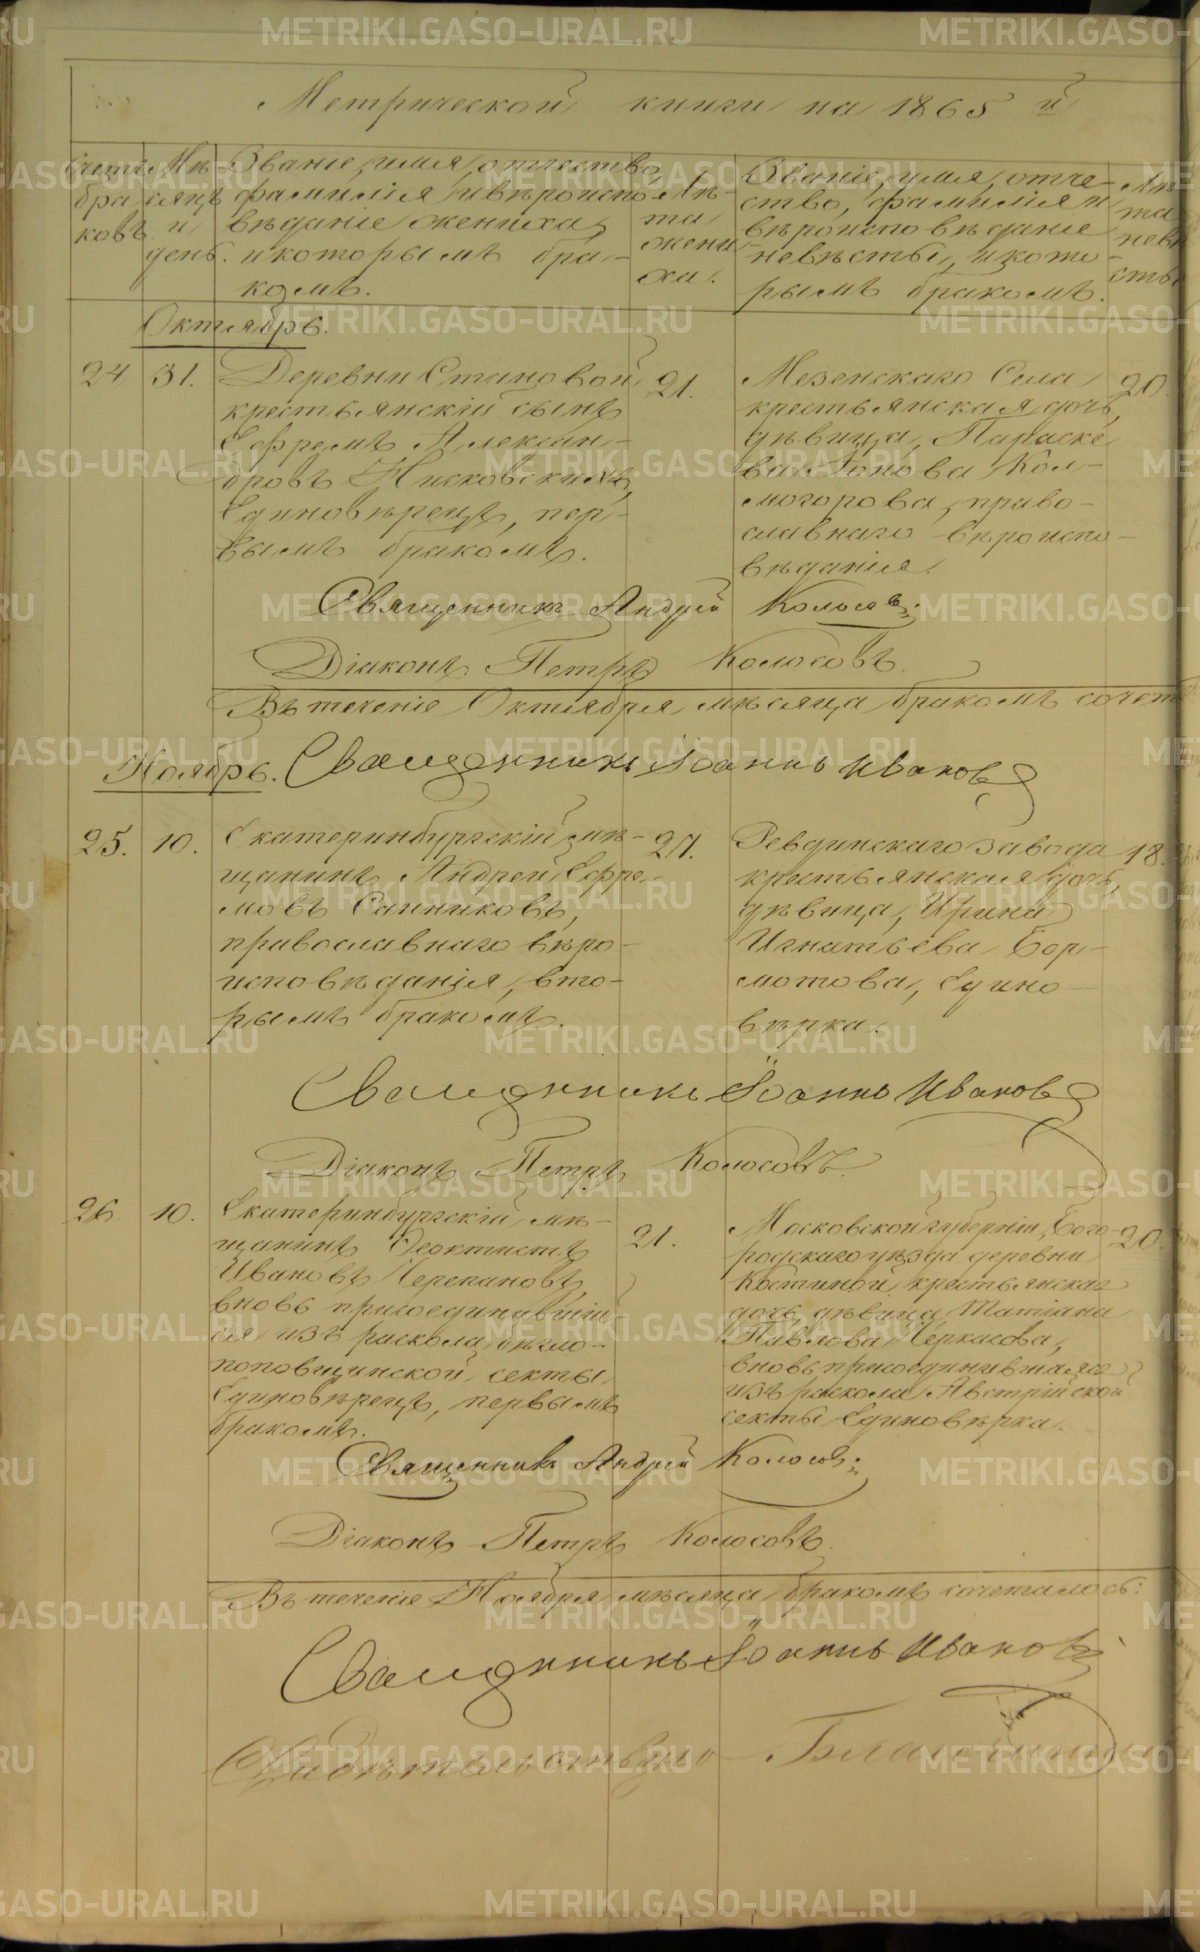 Метрической книги на 1865 й
Счетъ браковъ
Мѣсяцъ и день.
Званіе, имя, отчество,
фамилія и вѣроиспо-
вѣданіе жениха,
и которымъ бра-
комъ.
Лѣ-
та
жени-
ха.
Званіе, имя, отче-
ство, фамилія и
вѣроисповѣданіе
невѣсты, и кото-
рымъ бракомъ.
Лѣ
та
невѣ
сты
Октябрь.
24 31. Деревни Становой 21.
крестьянскій сынъ
Ефремъ Алексан-
дровъ Нисковскихъ,
Единовѣрецъ, пер-
вымъ бракомъ.
Мезенскаго Села 20.
крестьянская дочь,
дѣвица, Параске
ва Іонова Кол-
могорова, право-
славнаго вѣроиспо-
вѣданія.
Священникъ Андрей Колосовъ.
Діаконъ Петръ Колосовъ.
Въ теченіе Октября мѣсяца бракомъ сочет
Ноябрь. Священникъ Іоаннъ Ивановъ
25. 10. Екатеринбургскій мѣ- 27.
щанинъ Андрей Ефре-
мовъ Санниковъ,
православнаго вѣро-
исповѣданія, вто-
рымъ бракомъ.
Ревдинскаго завода 18.
крестьянская дочь,
дѣвица, Ирина
Игнатьева Бор-
мотова, Едино-
вѣрка.
Священникъ Іоаннъ Ивановъ
Діаконъ Петръ Колосовъ.
26 10. Екатеринбургскій мѣ- 21.
щанинъ Феоктистъ
Ивановъ Черепановъ,
вновь присоединившій-
ся изъ раскола, бѣгло-
поповщинской секты,
Единовѣрецъ, первымъ
бракомъ.
Московской губерніи, Бого- 20.
родскаго уѣзда деревни
Костиной, крестьянская
дочь, дѣвица Татіана
Павлова Черкасова,
вновь присоединившаяся
изъ раскола Австрійской
секты Единовѣрка.
Священникъ Андрей Колосовъ.
Діаконъ Петръ Колосовъ
Въ теченіе Ноября мѣсяца бракомъ сочеталось:
Священникъ Іоаннъ Ивановъ
Свидѣтельствую